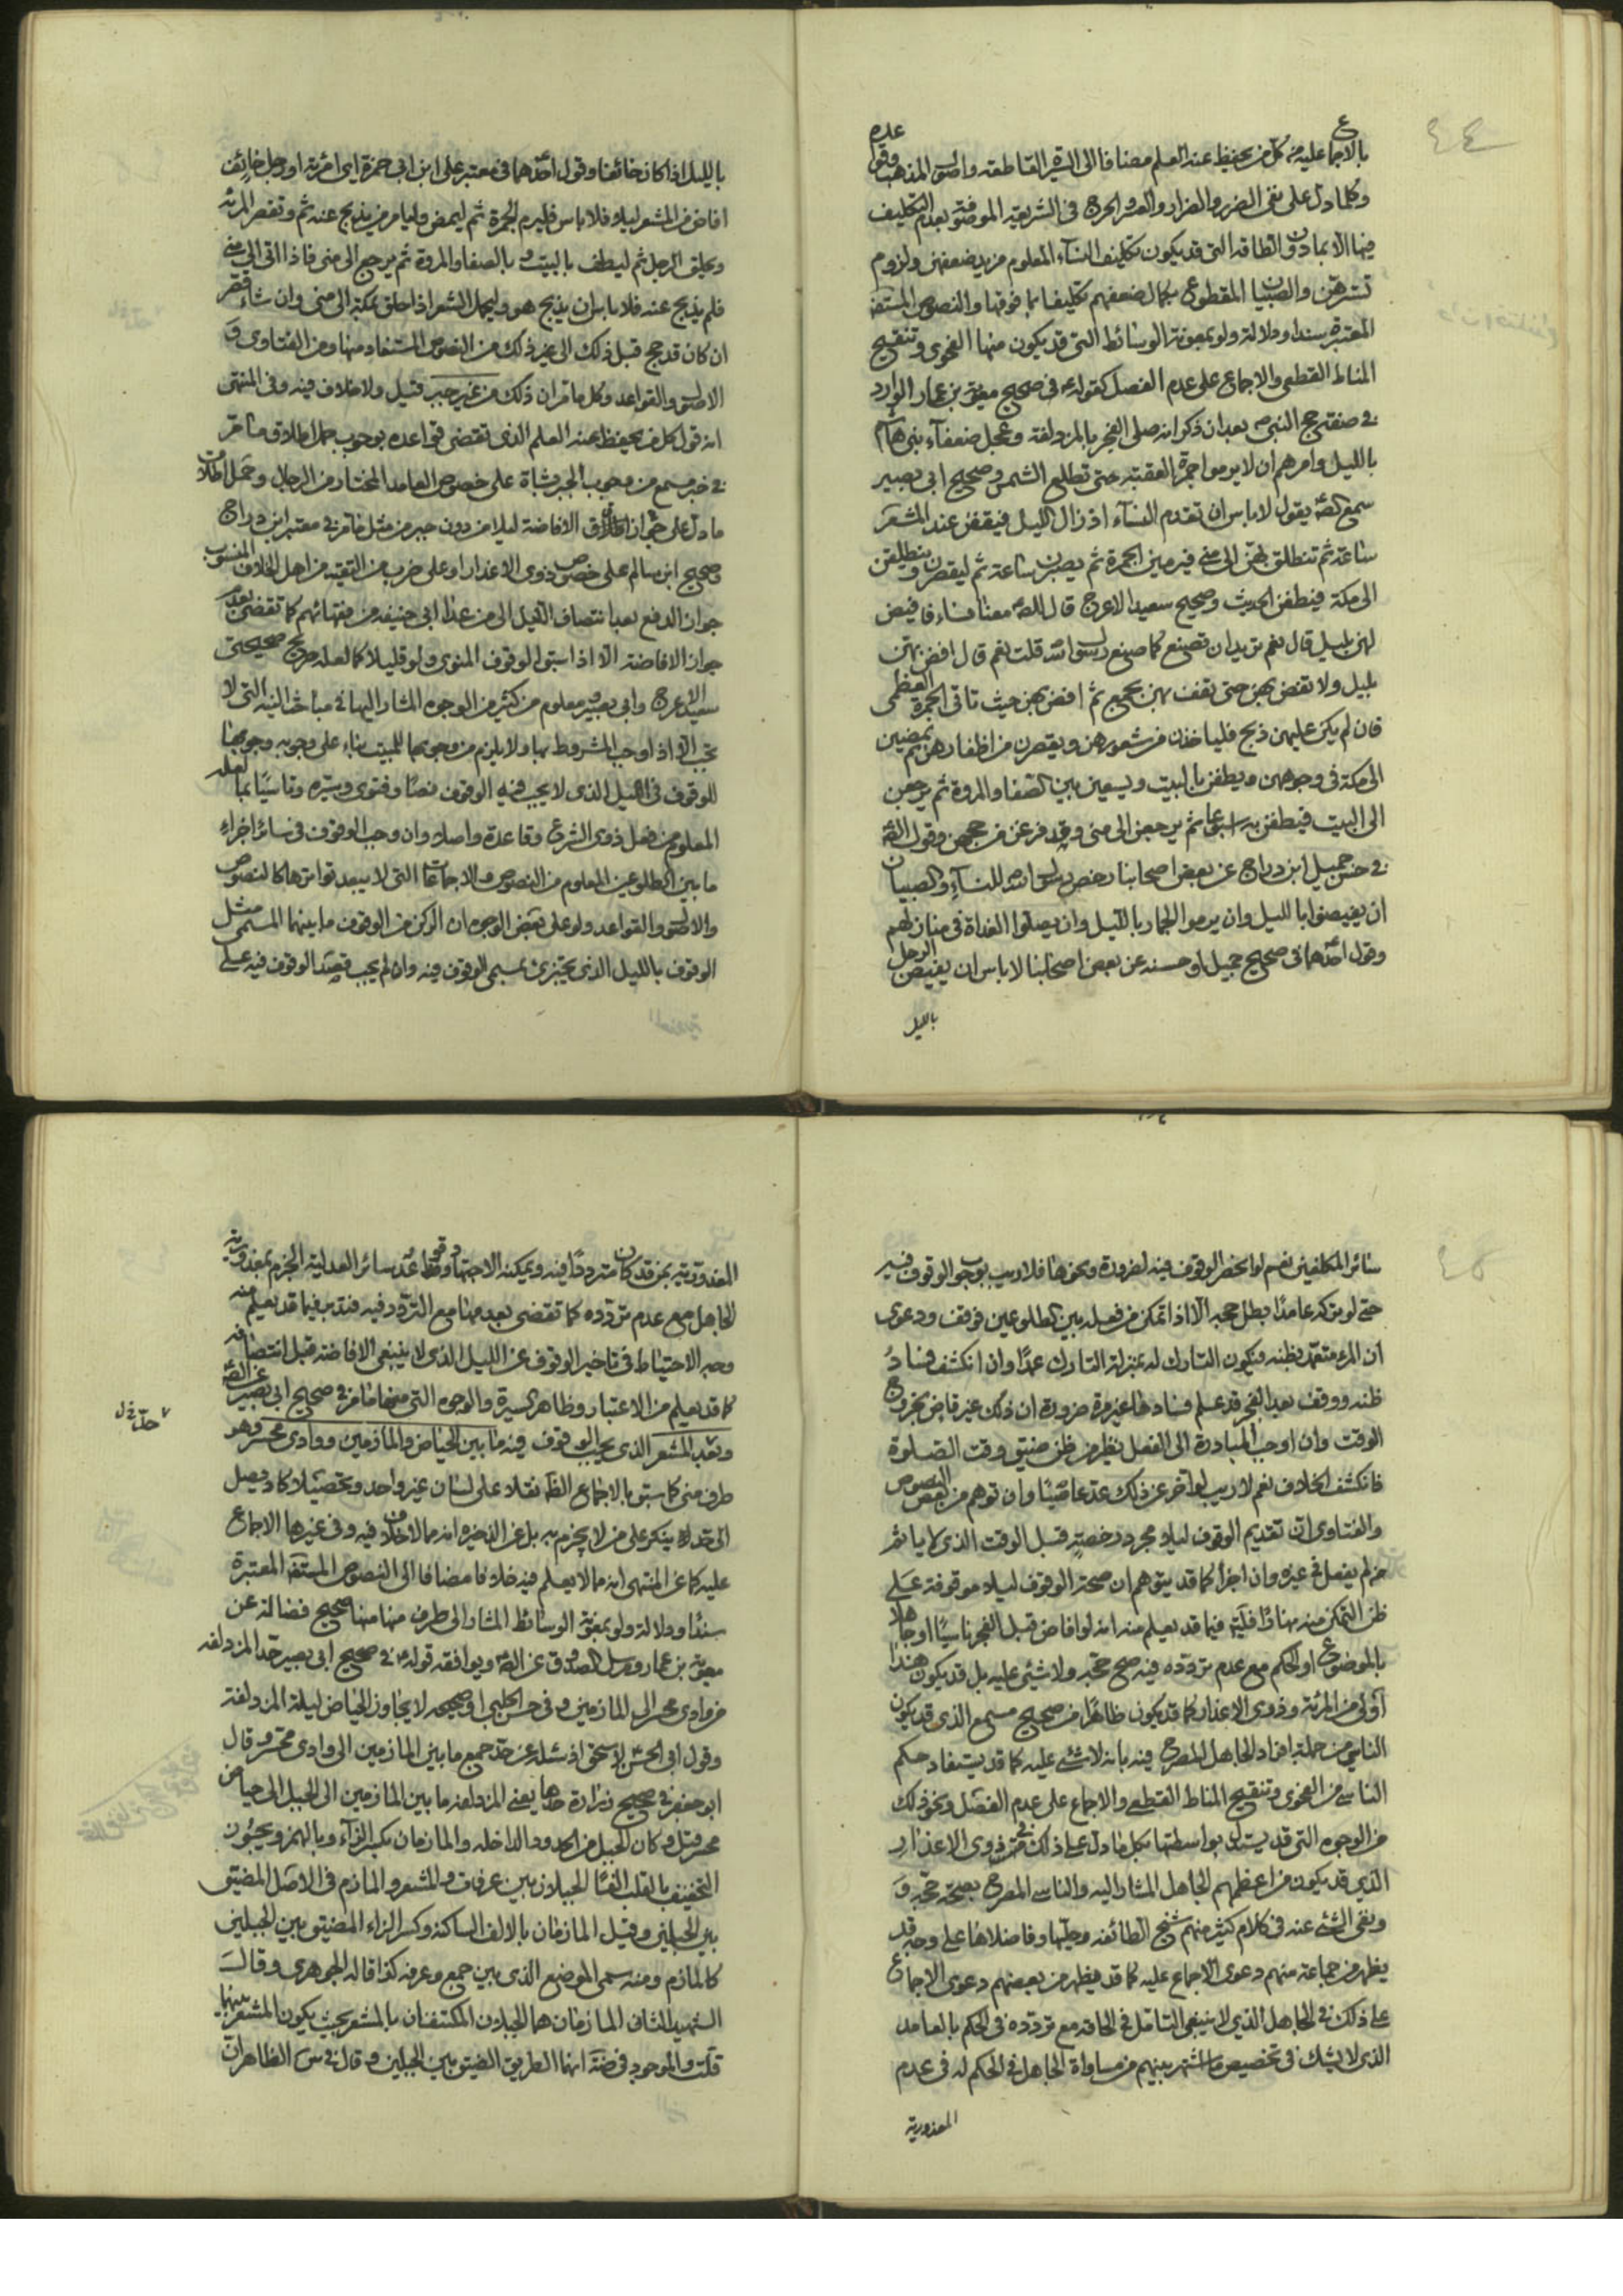 ٤٤
بالاجماع عليه من كل من يحفظ عنه العلم مضافا الى السيرة القاطعة واصول المذهب وقواعده
وكلما دل على نفى الضرر والضرار والعسر والحرج فى الشريعة الموصوفة بعدم التكليف
فيها الا بما دون الطاقة التى قد يكون تكليف النساء المعلوم مزيد ضعفهن ولزوم
تسترهن والصبيان المقطوع بكمال ضعفهم تكليفا بما فوقها والنصوص المستفيضة
المعتبرة سندا ودلالة ولو بمعونة الوسائط التى قد يكون منها الفحوى وتنقيح
المناط القطعى والاجماع على عدم الفصل كقوله ع فى صحيح معوية بن عمار الوارد
فى صفة حج النبى ص بعد ان ذكر انه صلى الفجر بالمزدلفة وعجل ضعفاء بنى هاشم
بالليل وامرهم ان لا يرموا جمرة العقبة حتى تطلع الشمس وصحيح ابى بصير
سمع الصه يقول لا باس ان تقدم النساء اذ زال الليل فيقفن عند المشعر
ساعة ثم تنطلق بهن الى منى فيرمين الجمرة ثم يصبرن ساعة ثم ليقصرن وينطلقن
الى مكة فيطفن الحديث وصحيح سعيد الاعرج قال للصه معنا نساء فافيض
بهن بليل قال نعم تريد ان تصنع كما صنع رسول الله قلت نعم قال افض بهن
بليل ولا تفض بهن حتى تقف بهن بجمع ثم افض بهن حيث تاتى الجمرة العظمى
فان لم يكن عليهن ذبح فلياخذن من شعورهن ويقصرن من اظفارهن ثم يمضين
الى مكة فى وجوههن ويطفن بالبيت ويسعين بين الصفا والمروة ثم يرجعن
الى البيت فيطفن به اسبوعا ثم يرجعن الى منى وقد فرغن من حجهن وقول الصه
فى حسن جميل ابن دراج عن بعض اصحابنا رخص رسول الله ص للنساء والصبيان
ان يفيضوا بالليل وان يرموا الجمار بالليل وان يصلوا الغداة فى منازلهم
وقول احدهما فى صحيح جميل او حسنه عن بعض اصحابنا لا باس ان يفيض الرجل
بالليل
بالليل اذا كان خائفا وقول احدهما فى معتبر على ابن ابى حمزة اى امرئة او رجل خائف
افاض من المشعر ليلا فلا باس فليرم الجمرة ثم ليمض وليامر من يذبح عنه ثم وتقصر المرئة
ويحلق الرجل ثم ليطف بالبيت و بالصفا والمروة ثم يرجع الى منى فاذا اتى الى منى
فلم يذبح عنه فلا باس ان يذبح هو وليحمل الشعر اذا حلق بمكة الى منى وان شاء قصر
ان كان قد حج قبل ذلك الى غير ذلك من النصوص المستفاد منها ومن الفتاوى و
الاصول والقواعد وكل ما مر ان ذلك من غير جبر قيل ولا خلاف فيه وفى المنتهى
انه قول كل من يحفظ عنه العلم الذى تقضى قواعده بوجوب حمل اطلاق ما مر
فى خبر مسمع من وجوب الجبر بشاة على خصوص العامد المختار من الرجال وحمل اطلاق
ما دل على جواز الافاضة ليلا من دون جبر من مثل ما مر فى معتبر ابن دراج
وصحيح ابن سالم على خصوص ذوى الاعذار او على ضرب من التقية من اهل الخلاف المنسوب
جواز الدفع بعد انتصاف الليل الى من عدا ابى حنيفة من فقهائهم كما تقضى بعد
جواز الافاضة الا اذا سبق الوقوف المنوى ولو قليلا كما لعله صريح صحيحتى
سعيد الاعرج وابى بصير ومعلوم من كثير من الوجوه المشار اليها فى مباحث النية التى لا
تجب الا اذا وجب المشروط بها ولا يلزم من وجوبها للمبيت بناء على وجوبه وجوبها
للوقوف فى الليل الذى لا يجب فيه الوقوف نصا وفتوى وسيرة وتاسيا بما لعله
المعلوم من فعل ذوى الشرع وقاعدة واصلا وان وجب الوقوف فى سائر اجزاء
ما بين الطلوعين المعلوم من النصوص والاجماعات التى لا يبعد تواترها كالنصوص
والاصول والقواعد ولو على بعض الوجوه ان الركن من الوقوف ما بينهما المسمى مثل
الوقوف بالليل الذى يجتزئ بمسمى الوقوف فيه وان لم يجب قصد الوقوف فيه على
٤٥
سائر المكلفين نعم لو انحصر الوقوف فيه لضرورة ونحوها فلا ريب بوجوب الوقوف فيه
حتى لو تركه عامدا بطل حجه الا اذا تمكن من فعله بين الطلوعين فوقف ودعوى
ان المرء متعبد بظنه فيكون التارك له بمنزلة التارك عمدا وان انكشف فساد
ظنه ووقف بعد الفجر قد علم فسادها غير مرة ضرورة ان ذلك غير قاض بخروج
الوقت وان اوجب المبادرة الى الفعل نظير من ظن ضيق وقت الصلوة
فانكشف الخلاف نعم لا ريب لو اخر عن ذلك عد عاصيا وان توهم من بعض النصوص
والفتاوى ان تقديم الوقوف ليلا مجرد رخصة قبل الوقت الذى لا ياثم
من لم يفعل فى غيره وان اجزأ كما قد يتوهم ان صحة الوقوف ليلا موقوفة على
ظن التمكن منه نهارا فليتم فيما قد يعلم منه انه لو افاض قبل الفجر ناسيا او جاهلا
بالموضوع او الحكم مع عدم تردده فيه صح حجه ولا شئ عليه بل قد يكون هذا
اولى من المرئة وذوى الاعذار كما قد يكون ظاهرا من صحيح مسمع الذى قد يكون
الناسى من جملة افراد الجاهل المصرح فيه بانه لا شئ عليه كما قد يستفاد حكم
الناسى من الفحوى وتنقيح المناط القطعى والاجماع على عدم الفصل ونحو ذلك
من الوجوه التى قد يستدل بواسطتها بكل ما دل على ذلك فى ذوى الاعذار
الذى قد يكون من اعظمهم الجاهل المشار اليه والناسى المصرح بصحة حجه و
ونفى الشئ عنه فى كلام كثير منهم شيخ الطائفة وحليها وفاضلاها على وجه قد
يظهر من جماعة منهم دعوى الاجماع عليه كما قد يظهر من بعضهم دعوى الاجماع
على ذلك فى الجاهل الذى لا ينبغى التامل فى الحاقه مع تردده فى الحكم بالعامد
الذى لا يشك فى تخصيص ما اشتهر بينهم من مساواة الجاهل فى الحكم له فى عدم
المعذورية
المعذورية بمن قد كان مترددا فيه ويمكنه الاجتهاد وقواعد سائر العدلية الجزم بمعذورية
الجاهل مع عدم تردده كما تقضى بعدمها مع التردد فيه فتدبر فيما قد يعلم منه
وجه الاحتياط فى تاخير الوقوف عن الليل الذى لا ينبغى الافاضة قبل انتصافه
كما قد يعلم من الاعتبار وظاهر السيرة والوجوه التى منها ما مر فى صحيح ابى بصير عن الصه
وبعد المشعر الذى يجب الوقوف فيه ما بين الحياض والمازمين ووادى محسر وهو
طرف منى كما سبق بالاجماع الظه نقلا على لسان غير واحد وتحصيلا كاد يصل
الى حد لا ينكر على من لا يجزم به بل عن الذخيرة انه مما لا خلاف فيه وفى غيرها الاجماع
عليه كما عن المنتهى انه مما لا يعلم فيه خلافا مضافا الى النصوص المستفيضة المعتبرة
سندا ودلالة ولو بمعونة الوسائط المشار الى طرف منها منها صحيح فضالة عن
معوية بن عمار ومرسل الصدوق عن الصه ويوافقه قوله ع فى صحيح ابى بصير حد المزدلفة
من وادى محسر الى المازمين وفى حسن الحلبى او صحيحه لا يجاوز الحياض ليلة المزدلفة
وقول ابى الحسن لاسحق اذ سئله عن حد جمع ما بين المازمين الى وادى محسر وقال
ابو جعفر فى صحيح زرارة حدها يعنى المزدلفة ما بين المازمين الى الجبل الى حياض
محسر قيل وكان الجبل من الحدود الداخلة والمازمان بكسر الزاء وبالهمز ويجوز
التخفيف بالقلب الفا الجبلان بين عرفات والمشعر والمازم فى الاصل المضيق
بين الجبلين وقيل المازمان بالالف الساكنة وكسر الزاء المضيق بين الجبلين
كالمازم ومنه سمى الموضع الذى بين جمع وعرفة كذا قاله الجوهرى وقال
الشهيد الثانى المازمان هما الجبلان المكتنفان بالمشعر بحيث يكون المشعر بينهما
قلت والموجود فى ضة انهما الطريق الضيق بين الجبلين وقال فى س الظاهر ان